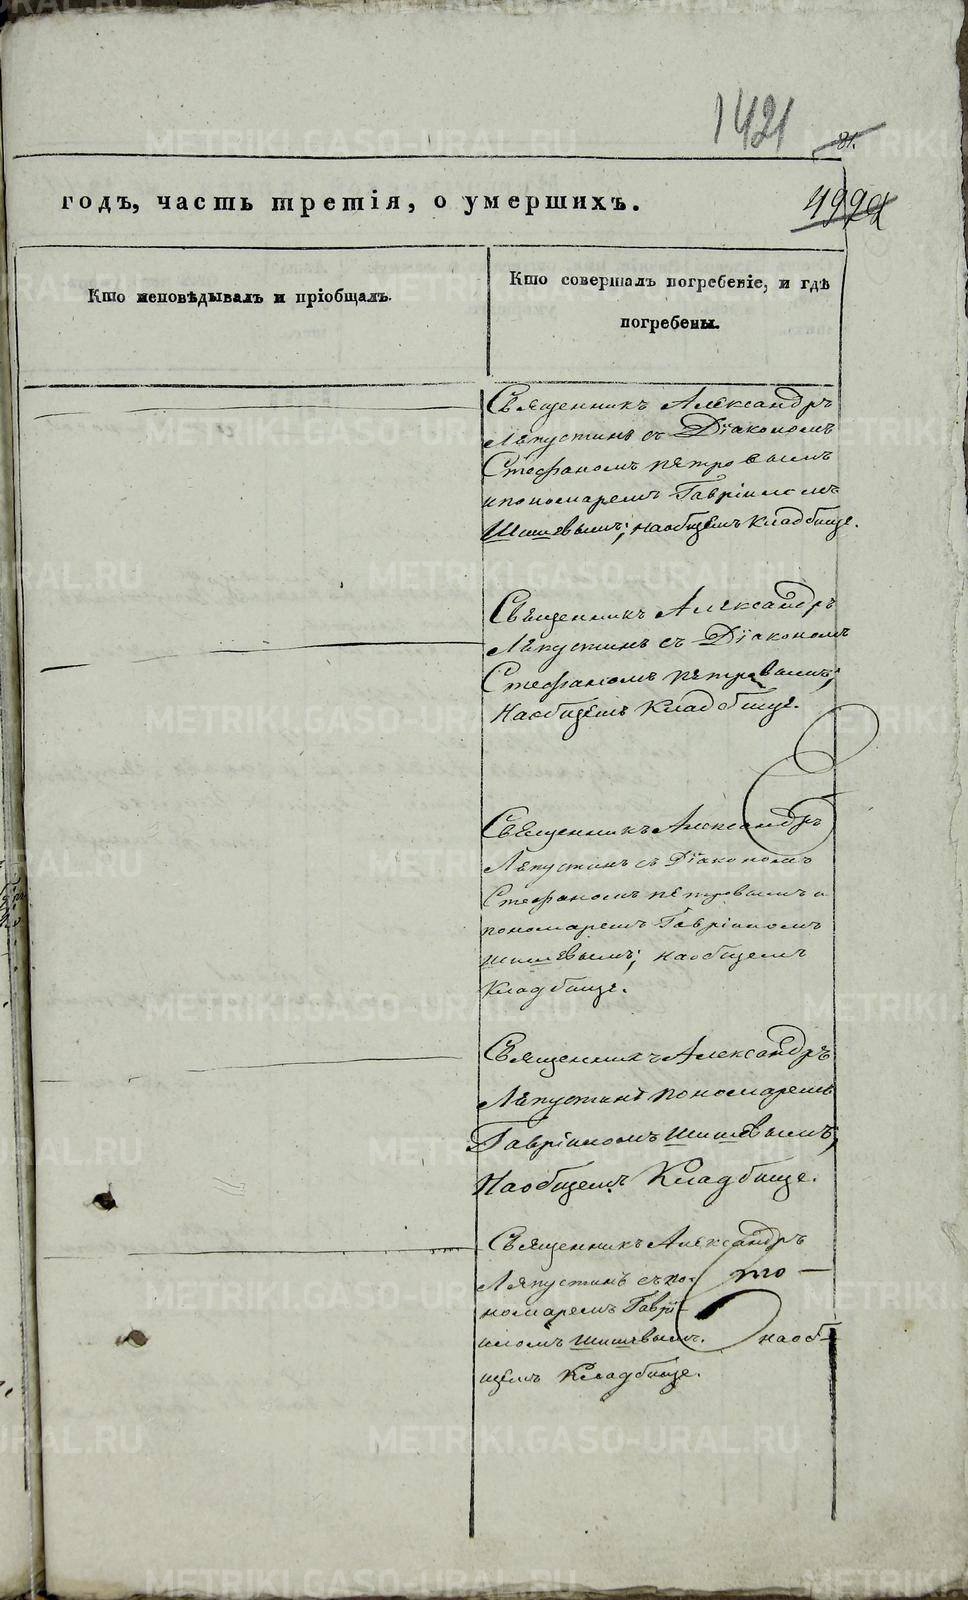 1421
81.
годъ, часть третія, о умершихъ.
Кто исповѣдывалъ и пріобщалъ.
Кто совершалъ погребеніе, и гдѣ
погребены.
Священникъ Александръ
Ляпустинъ съ Діакономъ
Стефаномъ Петровымъ
и пономаремъ Гавріиломъ
Шишевымъ; на общемъ Кладбище.
Священникъ Александръ
Ляпустинъ съ Діакономъ
Стефаномъ Петровымъ;
На общемъ Кладбище.
Священникъ Александръ
Ляпустинъ съ Діакономъ
Стефаномъ Петровымъ и
пономаремъ Гавріиломъ
Шишевымъ; на общемъ
Кладбище.
Священникъ Александръ
Ляпустинъ пономаремъ
Гавріиломъ Шишевымъ;
На общемъ Кладбище.
Священникъ Александръ
Ляпустинъ съ по-
номаремъ Гаврі-
иломъ Шишевымъ. на об-
щемъ Кладбище.
METRIKI.GASO-URAL.RU